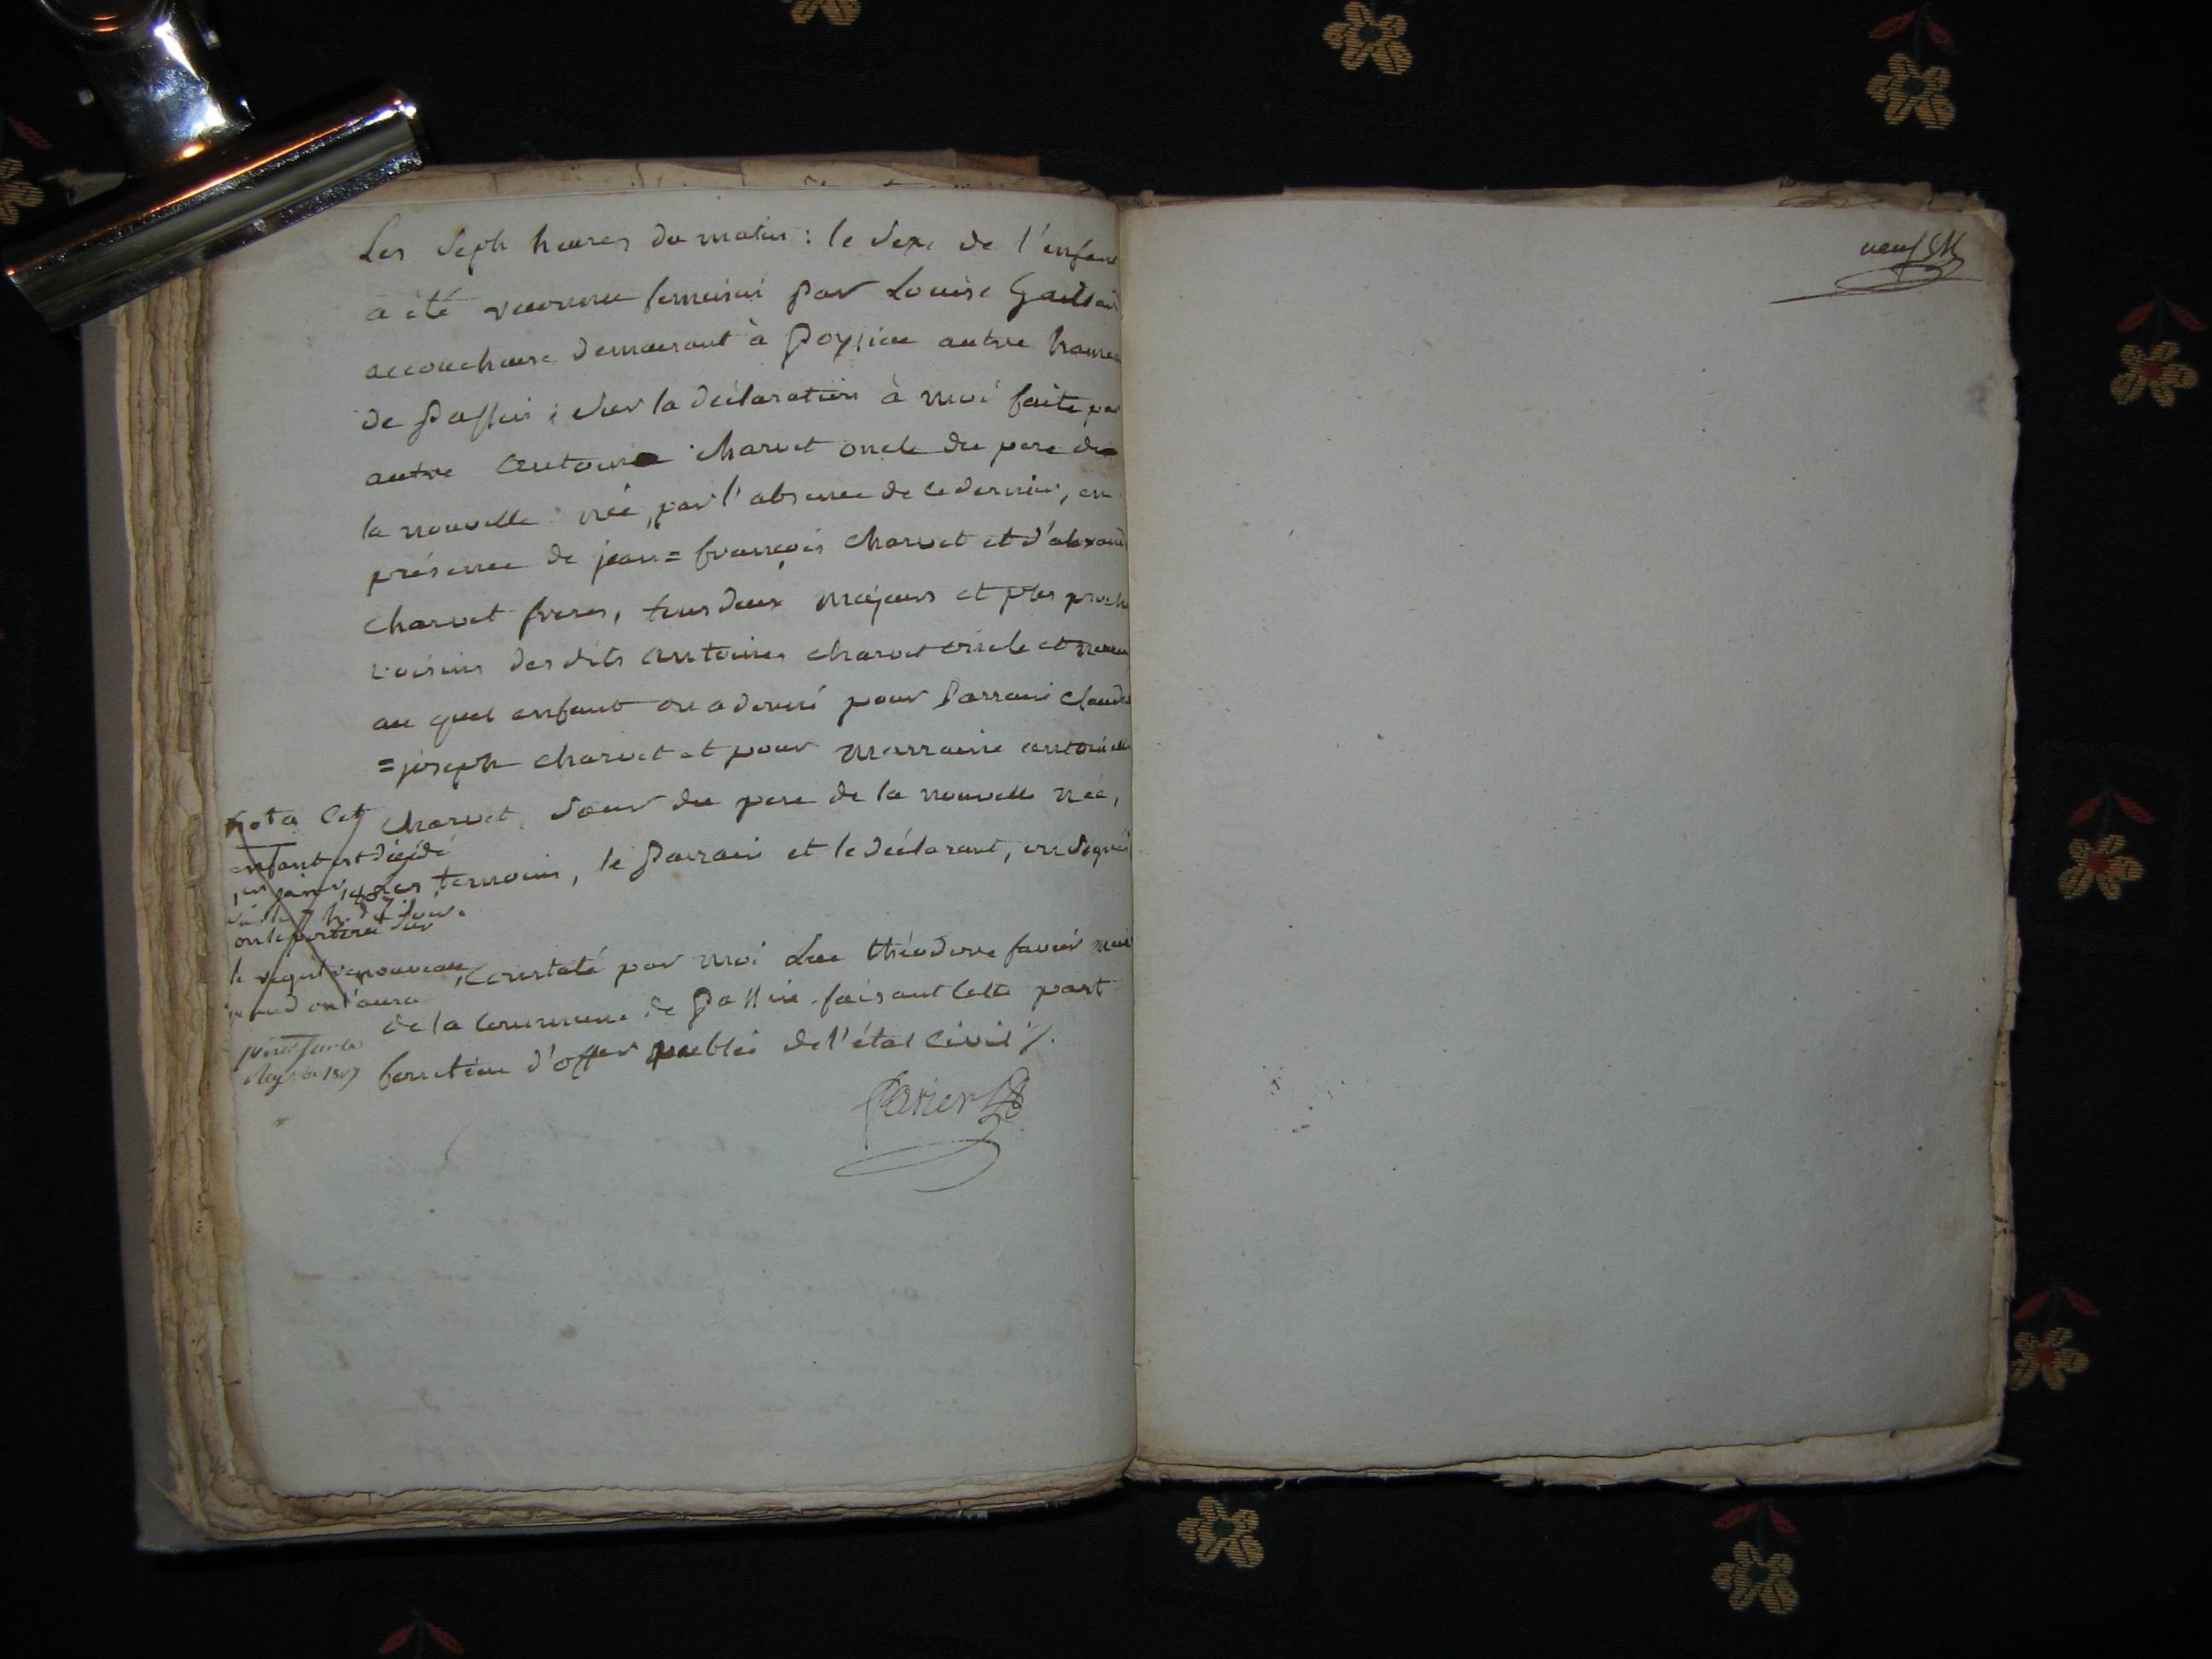 Les Sept heures du matin : le Sexe de l'enfant
a été reconnu feminin par Louise Gaillard
accoucheuse demeurant à Poyſieu autre hameau
de Paſſin ; Sur la déclaration à moi faite par
autre Antoine charvet oncle du pere de
la nouvelle née, par l'absence de ce dernier, en
présence de jean= françois charvet et d'alexand
charvet freres, tous deux majeurs et plus proche
voisins des dits antoines charvet oncle et neveu
au quel enfant on a donné pour Parrain claude
=joseph charvet et pour marraine antoinette
charvet, Sœur du pere de la nouvelle née,
Les temoins, le Parrain et le déclarant, on Signés
Constaté par moi Luc théodore favier maire
de la Commune de Passin faisant cette part
fonction d'offier public de l'état Civil ./.
Favier
Nota Cet
enfant est décédé
en janv.
7 h. du Soir.
on le portera Sur
le registre nouveau
quand on l'aura
porté sur le
Reg. de 1807
neuf